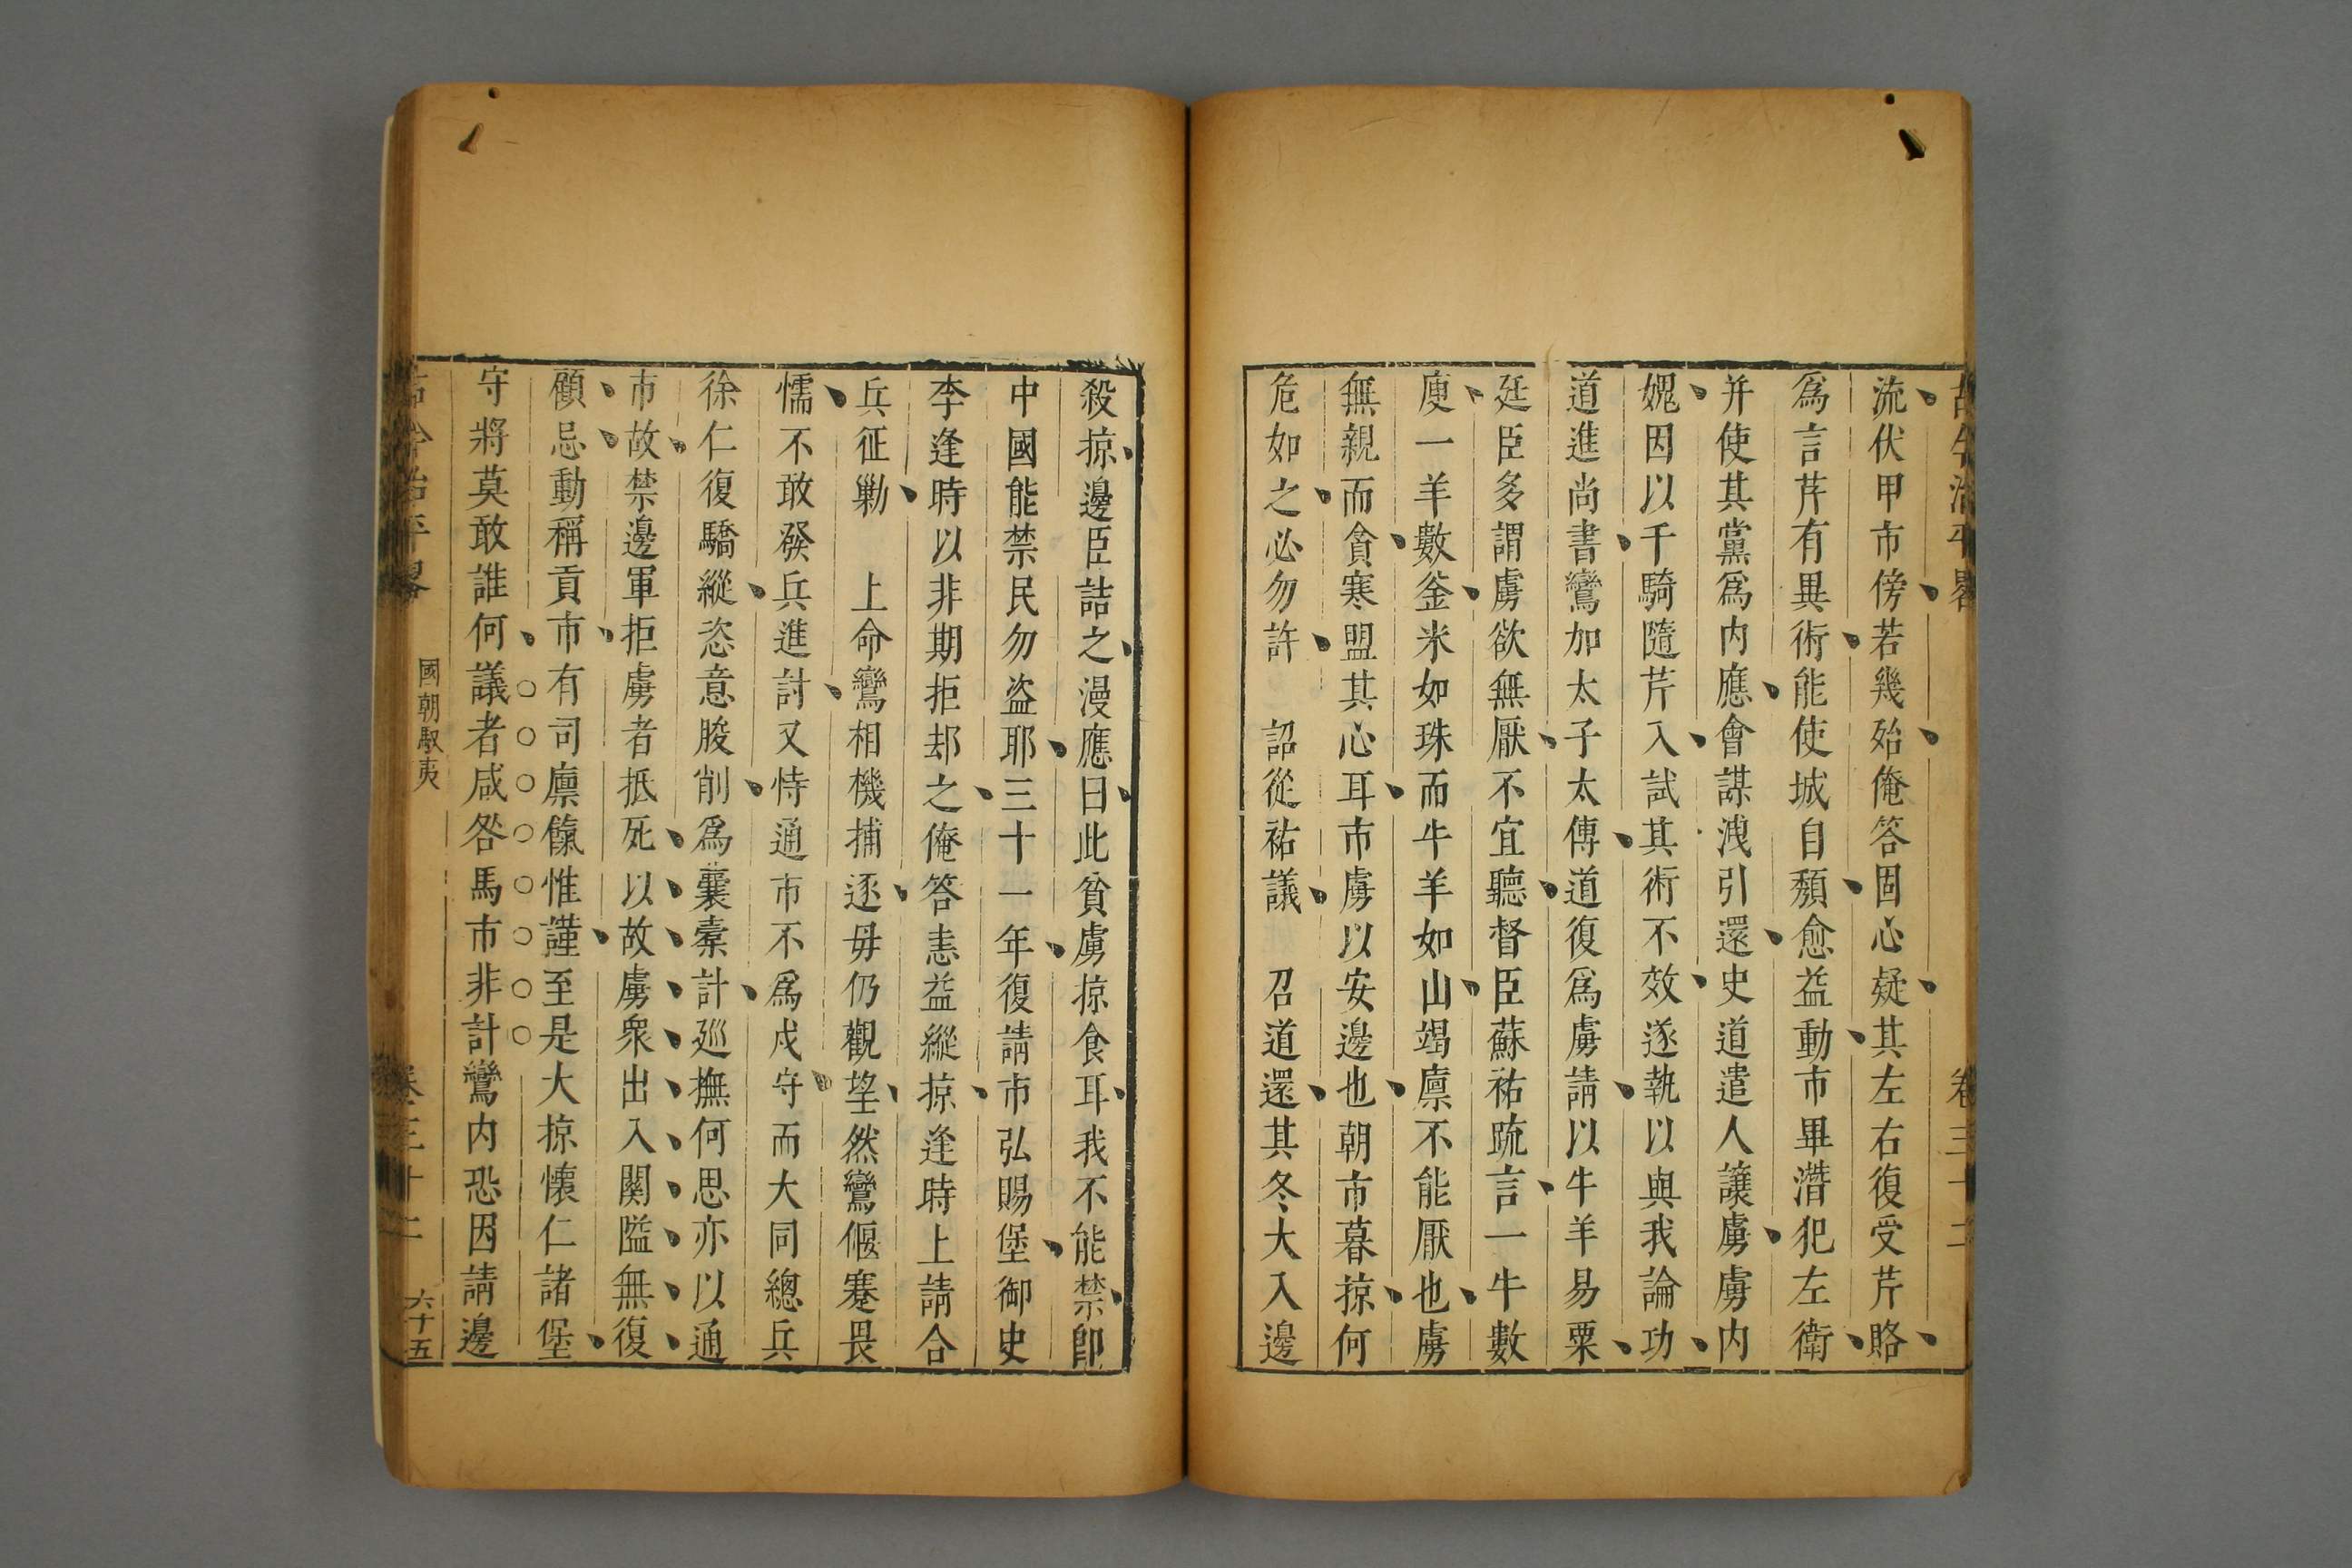 古今治平畧 卷三十二
流伏甲市傍若幾殆俺答固心疑其左右復受芹賂
爲言芹有異術能使城自頽愈益動市畢潛犯左衛
并使其黨爲内應會謀洩引還史道遣人讓虜虜内
媿因以千騎隨芹入試其術不效遂執以與我論功
道進尚書鸞加太子太傅道復爲虜請以牛羊易粟
廷臣多謂虜欲無厭不宜聽督臣蘇祐䟽言一牛數
庾一羊數釜米如珠而牛羊如山竭廪不能厭也虜
無親而貪寒盟其心耳市虜以安邊也朝市暮掠何
危如之必勿許　詔從祐議　召道還其冬大入邊
殺掠邊臣詰之漫應曰此貧虜掠食耳我不能禁卽
中國能禁民勿盗耶三十一年復請市弘賜堡御史
李逢時以非期拒却之俺答恚益縱掠逢時上請合
兵征勦　上命鸞相機捕逐毋仍觀望然鸞偃蹇畏
懦不敢發兵進討又恃通市不爲戍守而大同總兵
徐仁復驕縱恣意朘削爲囊橐計廵撫何思亦以通
市故禁邊軍拒虜者抵死以故虜衆出入關隘無復
顧忌動稱貢市有司廪餼惟謹至是大掠懷仁諸堡
守將莫敢誰何議者咸咎馬市非計鸞内恐因請邊
古今治平畧 國朝馭夷 卷三十二 六十五